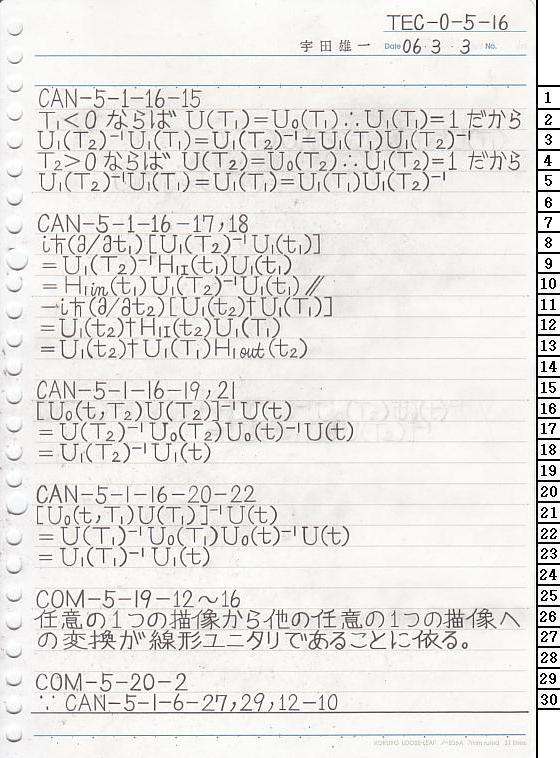 TEC-0-5-16
宇田雄一 Date 06・3・3 No.
CAN-5-1-16-15
T₁<0 ならば U(T₁)=U₀(T₁)∴U₁(T₁)=1 だから
U₁(T₂)⁻¹U₁(T₁)=U₁(T₂)⁻¹=U₁(T₁)U₁(T₂)⁻¹
T₂>0 ならば U(T₂)=U₀(T₂)∴U₁(T₂)=1 だから
U₁(T₂)⁻¹U₁(T₁)=U₁(T₁)=U₁(T₁)U₁(T₂)⁻¹
CAN-5-1-16-17,18
iħ(∂/∂t₁)[U₁(T₂)⁻¹U₁(t₁)]
=U₁(T₂)⁻¹H₁I(t₁)U₁(t₁)
=H₁in(t₁)U₁(T₂)⁻¹U₁(t₁)//
-iħ(∂/∂t₂)[U₁(t₂)†U₁(T₁)]
=U₁(t₂)†H₁I(t₂)U₁(T₁)
=U₁(t₂)†U₁(T₁)H₁out(t₂)
CAN-5-1-16-19,21
[U₀(t,T₂)U(T₂)]⁻¹U(t)
=U(T₂)⁻¹U₀(T₂)U₀(t)⁻¹U(t)
=U₁(T₂)⁻¹U₁(t)
CAN-5-1-16-20-22
[U₀(t,T₁)U(T₁)]⁻¹U(t)
=U(T₁)⁻¹U₀(T₁)U₀(t)⁻¹U(t)
=U₁(T₁)⁻¹U₁(t)
COM-5-19-12~16
任意の1つの描像から他の任意の1つの描像へ
の変換が線形ユニタリであることに依る。
COM-5-20-2
∵ CAN-5-1-6-27,29,12-10
KOKUYO LOOSE-LEAF ノ-836A 7mm ruled 31 lines
1
2
3
4
5
6
7
8
9
10
11
12
13
14
15
16
17
18
19
20
21
22
23
24
25
26
27
28
29
30